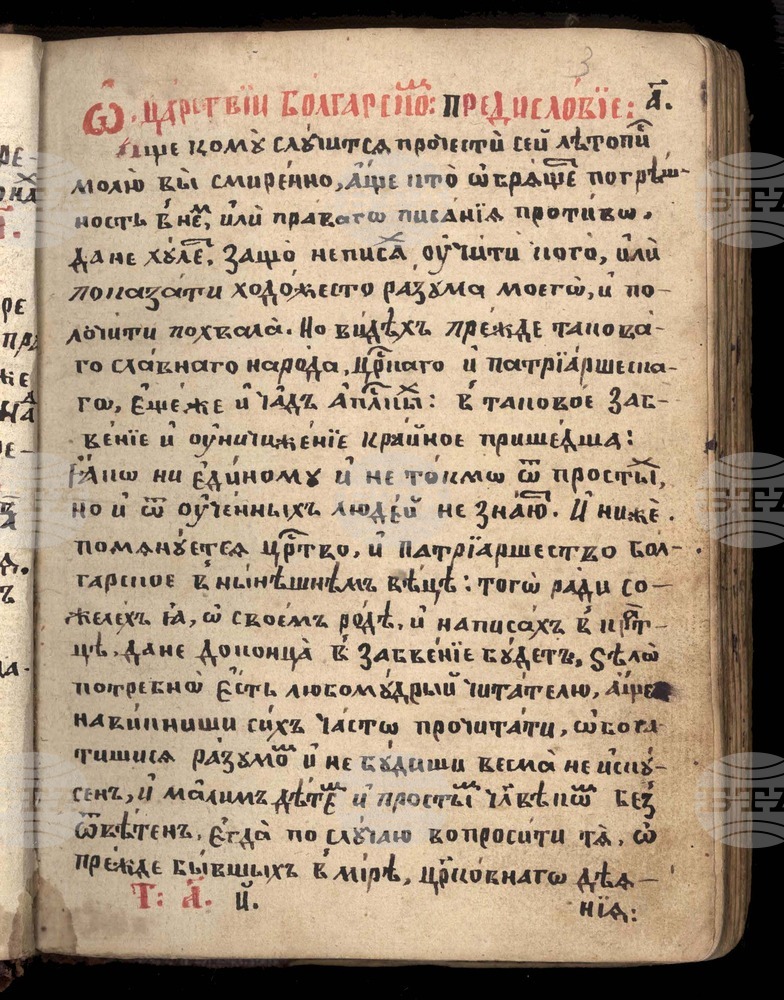 3
Ѡ҆. ЦАРСТВЇИ БОЛГАРСКОⷨ: ПРЕДИСЛОВЇЕ: а҃.
Аще комꙋ̀ слꙋчится прочести̇̀ сей лѣтопиⷭ҇
молю̀ вы̀ смире́нно, а҆́ще что̀ ѡ҆брѧ́щеⷮ погрѣш-
ность в̾ не́ⷨ, и҆ли̇̀ пра́вагѡ писа́нїѧ проти́вѡ,
да не хꙋ́леⷮ, защо̀ не писаⷯ, оу҆чи́ти кого̀, и҆ли̇̀
показа́ти ходожесто ра́зума моегѡ̀, и҆ по-
лꙋчи́ти похвала̀. Но ви́дѣхъ пре́жде такова́-
го сла́внаго наро́да, црⷭ҇каго и҆ патрїа́ршеска-
гѡ, е҆ще́же и҆ ча́дъ апⷭ҇лскиⷯ: в̾ таково́е заб-
ве́нїе и҆ оу҆ничиже́нїе кра́йное прише́дша:
Ꙗ҆́кѡ ни е҆ди́ному и҆ не то́кмѡ ѿ просты́ⷯ,
но и҆ ѿ оу҆че́нныхъ люде́й не зна́юⷮ. И҆ нижѐ
помѧнꙋ́етсѧ црⷭ҇тво, и҆ патрїа́ршество бол-
га́рское в̾ ны́нѣшнѣмъ вѣ́цѣ: тогѡ̀ ра́ди со-
желе́хъ ꙗ҆̀, ѡ҆ свое́мъ ро́дѣ, и҆ написа́хъ в̾ краⷮ-
цѣ. да не доконца̀ в̾ забве́нїе бꙋ́детъ, ѕѣлѡ̀
потре́бнѡ е҆́сть любомꙋ́дрый чита́телю, а҆́ще
навы́книши си́хъ ча́стѡ прочита́ти, ѡ҆бога-
ти́шисѧ ра́зумоⷨ и҆ не бꙋ́диши весма̀ не и҆скꙋ́-
сенъ, и҆ ма́лимъ дѣ́теⷨ и҆ просты́ⷨ чл҃вѣ́кѡⷨ без̾
ѿвѣ́тенъ, е҆гда̀ по слꙋ́чаю вопроси́ти тѧ̀, ѡ҆
пре́жде бы́вшыхъ в̾ мі́рѣ, цр҃ко́внагѡ дѣѧ-
Т: А҃. и҃.
нїѧ: